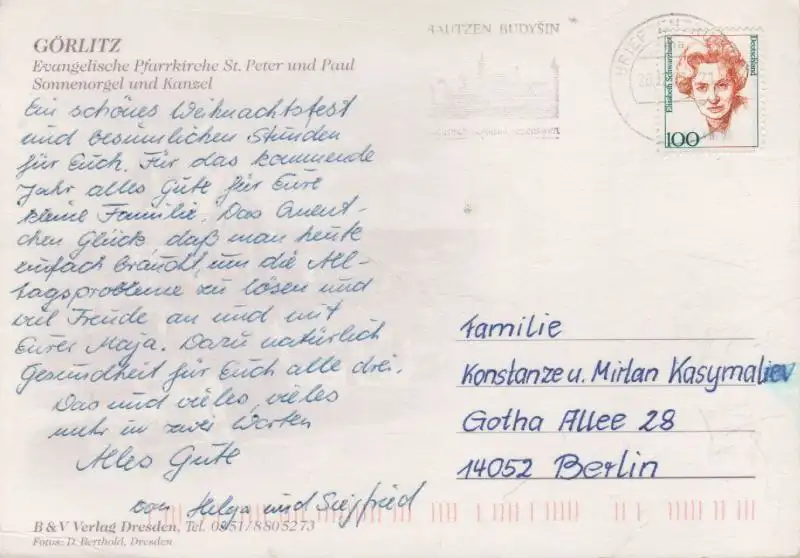 GÖRLITZ
Evangelische Pfarrkirche St. Peter und Paul
Sonnenorgel und Kanzel
Ein schönes Weihnachtsfest
und besinnlichen Stunden
für Euch. Für das kommende
Jahr alles Gute für Eure
kleine Familie. Das Quent-
chen Glück, daß man heute
einfach braucht, um die All-
tagsprobleme zu lösen und
viel Freude an und mit
Eurer Maja. Dazu natürlich
Gesundheit für Euch alle drei.
Das und vieles, vieles
mehr in zwei Worten
Alles Gute
von Helga und Siegfried
B & V Verlag Dresden, Tel. 0351/8805273
Fotos: D. Berthold, Dresden
BAUTZEN BUDYŠIN
BRIEFZENTRUM
Elisabeth Schwarzhaupt
Deutschland
100
Familie
Konstanze u. Mirlan Kasymaliev
Gotha Allee 28
14052 Berlin